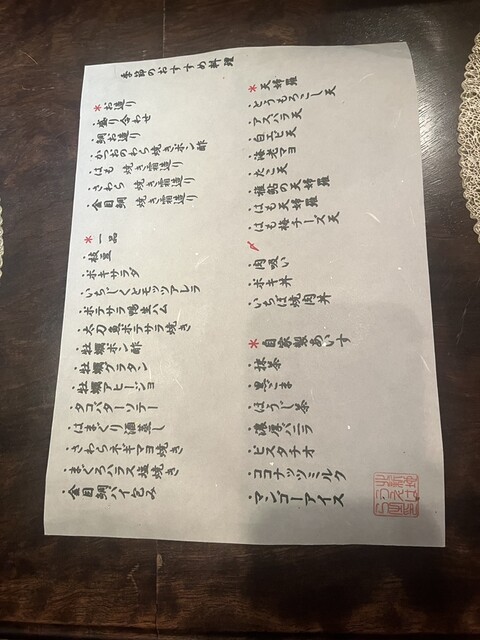 季節のおすすめ料理
*お造り
・盛り合わせ
・鯛お造り
・かつおのわら焼きポン酢
・はも 焼き霜造り
・さわら 焼き霜造り
・金目鯛 焼き霜造り
*一品
・枝豆
・ポキサラダ
・いちじくとモッツアレラ
・ポテサラ鴨生ハム
・太刀魚ポテサラ焼き
・牡蠣ポン酢
・牡蠣グラタン
・牡蠣アヒージョ
・タコバターソテー
・はまぐり酒蒸し
・さわらネギマヨ焼き
・まぐろハラス塩焼き
・金目鯛パイ包み
*天婦羅
・とうもろこし天
・アスパラ天
・白エビ天
・海老マヨ
・たこ天
・稚鮎の天婦羅
・はも天婦羅
・はも梅チーズ天
〆
・肉吸い
・ポキ丼
・いちぼ焼肉丼
*自家製あいす
・抹茶
・黒ごま
・ほうじ茶
・濃厚バニラ
・ピスタチオ
・ココナッツミルク
・マンゴーアイス